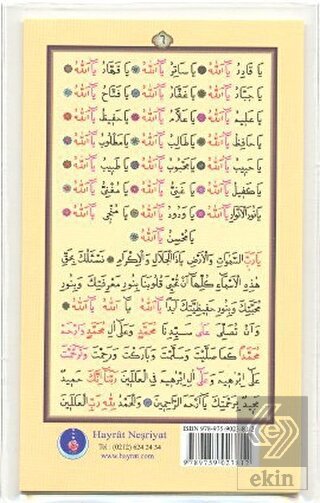 ٦
يَا قَادِرُ يَا اَللّٰهُ يَا سَاتِرُ يَا اَللّٰهُ يَا قَهَّارُ يَا اَللّٰهُ
يَا جَبَّارُ يَا اَللّٰهُ يَا غَفَّارُ يَا اَللّٰهُ يَا فَتَّاحُ يَا اَللّٰهُ
يَا عَلِيمُ يَا اَللّٰهُ يَا عَلَّامُ يَا اَللّٰهُ يَا حَفِيظُ يَا اَللّٰهُ
يَا حَافِظُ يَا اَللّٰهُ يَا طَالِبُ يَا اَللّٰهُ يَا مَطْلُوبُ يَا اَللّٰهُ
يَا حَبِيبُ يَا اَللّٰهُ يَا مَحْبُوبُ يَا اَللّٰهُ يَا طَبِيبُ يَا اَللّٰهُ
يَا كَفِيلُ يَا اَللّٰهُ يَا غَنِيُّ يَا اَللّٰهُ يَا مُغْنِي يَا اَللّٰهُ
يَا نُورَ الْاَنْوَارِ يَا اَللّٰهُ يَا وَدُودُ يَا اَللّٰهُ يَا مُنْجِي يَا اَللّٰهُ
يَا مُحْسِنُ يَا اَللّٰهُ
يَا رَبَّ السَّمٰوَاتِ وَالْاَرْضِ يَا ذَا الْجَلَالِ وَالْاِكْرَامِ نَسْئَلُكَ بِحَقِّ
هٰذِهِ الْاَسْمَاءِ كُلِّهَا اَنْ تُعَمِّرَ قُلُوبَنَا بِنُورِ مَعْرِفَتِكَ وَبِنُورِ
مَحَبَّتِكَ وَبِنُورِ حَفِيظِيَّتِكَ اَبَدًا يَا اَللّٰهُ يَا اَللّٰهُ يَا اَللّٰهُ
وَاَنْ تُصَلِّيَ عَلٰى سَيِّدِنَا مُحَمَّدٍ وَعَلٰى اٰلِ مُحَمَّدٍ وَارْحَمْ
مُحَمَّدًا كَمَا صَلَّيْتَ وَسَلَّمْتَ وَبَارَكْتَ وَرَحِمْتَ وَتَرَحَّمْتَ
عَلٰى اِبْرٰهِيمَ وَعَلٰى اٰلِ اِبْرٰهِيمَ فِي الْعَالَمِينَ رَبَّنَا اِنَّكَ حَمِيدٌ
مَجِيدٌ بِرَحْمَتِكَ يَا اَرْحَمَ الرَّاحِمِينَ وَالْحَمْدُ لِلّٰهِ رَبِّ الْعَالَمِينَ
Hayrât Neşriyat
Tel : (0212) 624 24 34
www.hayrat.com
ekin